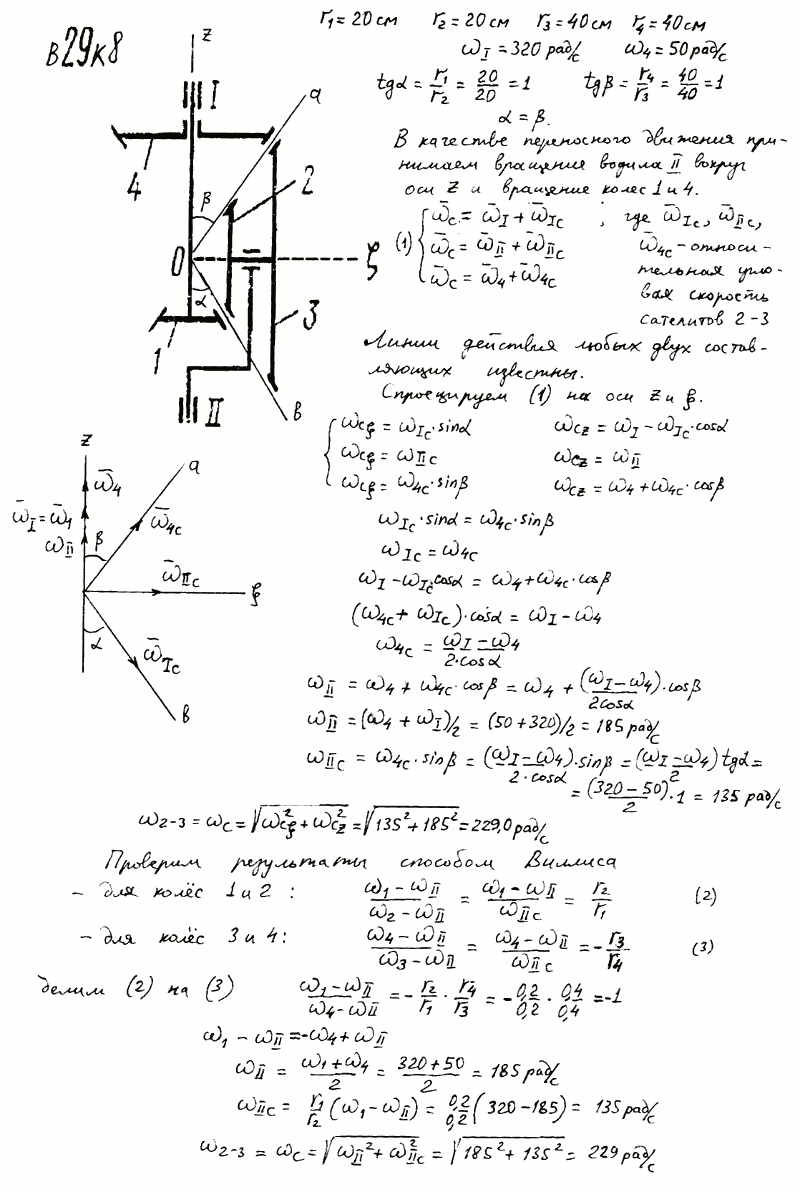 В29к8
r₁ = 20 см r₂ = 20 см r₃ = 40 см r₄ = 40 см
ω_I = 320 рад/с ω₄ = 50 рад/с
tgα = r₁/r₂ = 20/20 = 1 tgβ = r₄/r₃ = 40/40 = 1
α = β.
В качестве переносного движения при-
нимаем вращения водила II вокруг
оси Z и вращение колес 1 и 4.
(1) { ω̄_c = ω̄_I + ω̄_Ic ; где ω̄_Ic, ω̄_IIc,
ω̄_c = ω̄_II + ω̄_IIc ω̄_4c – относи-
ω̄_c = ω̄_4 + ω̄_4c тельная угло-
вая скорость
сателитов 2-3
Линии действия любых двух состав-
ляющих известны.
Спроецируем (1) на оси Z и ξ.
{ ω_cξ = ω_Ic·sinα ω_cz = ω_I – ω_Ic·cosα
ω_cξ = ω_IIc ω_cz = ω_II
ω_cξ = ω_4c·sinβ ω_cz = ω_4 + ω_4c·cosβ
ω_Ic·sinα = ω_4c·sinβ
ω_Ic = ω_4c
ω_I – ω_Ic·cosα = ω_4 + ω_4c·cosβ
(ω_4c + ω_Ic)·cosα = ω_I – ω_4
ω_4c = (ω_I – ω_4)/(2·cosα)
ω_II = ω_4 + ω_4c·cosβ = ω_4 + (ω_I – ω_4)/(2cosα)·cosβ
ω_II = (ω_4 + ω_I)/2 = (50 + 320)/2 = 185 рад/с
ω_IIc = ω_4c·sinβ = (ω_I – ω_4)/(2·cosα)·sinβ = (ω_I – ω_4)/2 tgα =
= (320 – 50)/2·1 = 135 рад/с
ω_2-3 = ω_c = √(ω²_cξ + ω²_cz) = √(135² + 185²) = 229,0 рад/с
Проверим результаты способом Виллиса
– для колёс 1 и 2 : (ω₁ – ω_II)/(ω₂ – ω_II) = (ω₁ – ω_II)/ω_IIc = r₂/r₁ (2)
– для колёс 3 и 4: (ω₄ – ω_II)/(ω₃ – ω_II) = (ω₄ – ω_II)/ω_IIc = –r₃/r₄ (3)
делим (2) на (3) (ω₁ – ω_II)/(ω₄ – ω_II) = –r₂/r₁ · r₄/r₃ = –0,2/0,2 · 0,4/0,4 = –1
ω₁ – ω_II = –ω₄ + ω_II
ω_II = (ω₁ + ω₄)/2 = (320 + 50)/2 = 185 рад/с
ω_IIc = r₁/r₂ (ω₁ – ω_II) = 0,2/0,2 (320 – 185) = 135 рад/с
ω_2-3 = ω_c = √(ω_II² + ω²_IIc) = √(185² + 135²) = 229 рад/с
z
I
a
4
2
β
O
ξ
α
1
3
II
в
z
a
ω̄_4
ω̄_I = ω̄_1
ω̄_4c
ω̄_II
β
ω̄_IIc
ξ
α
ω̄_Ic
в